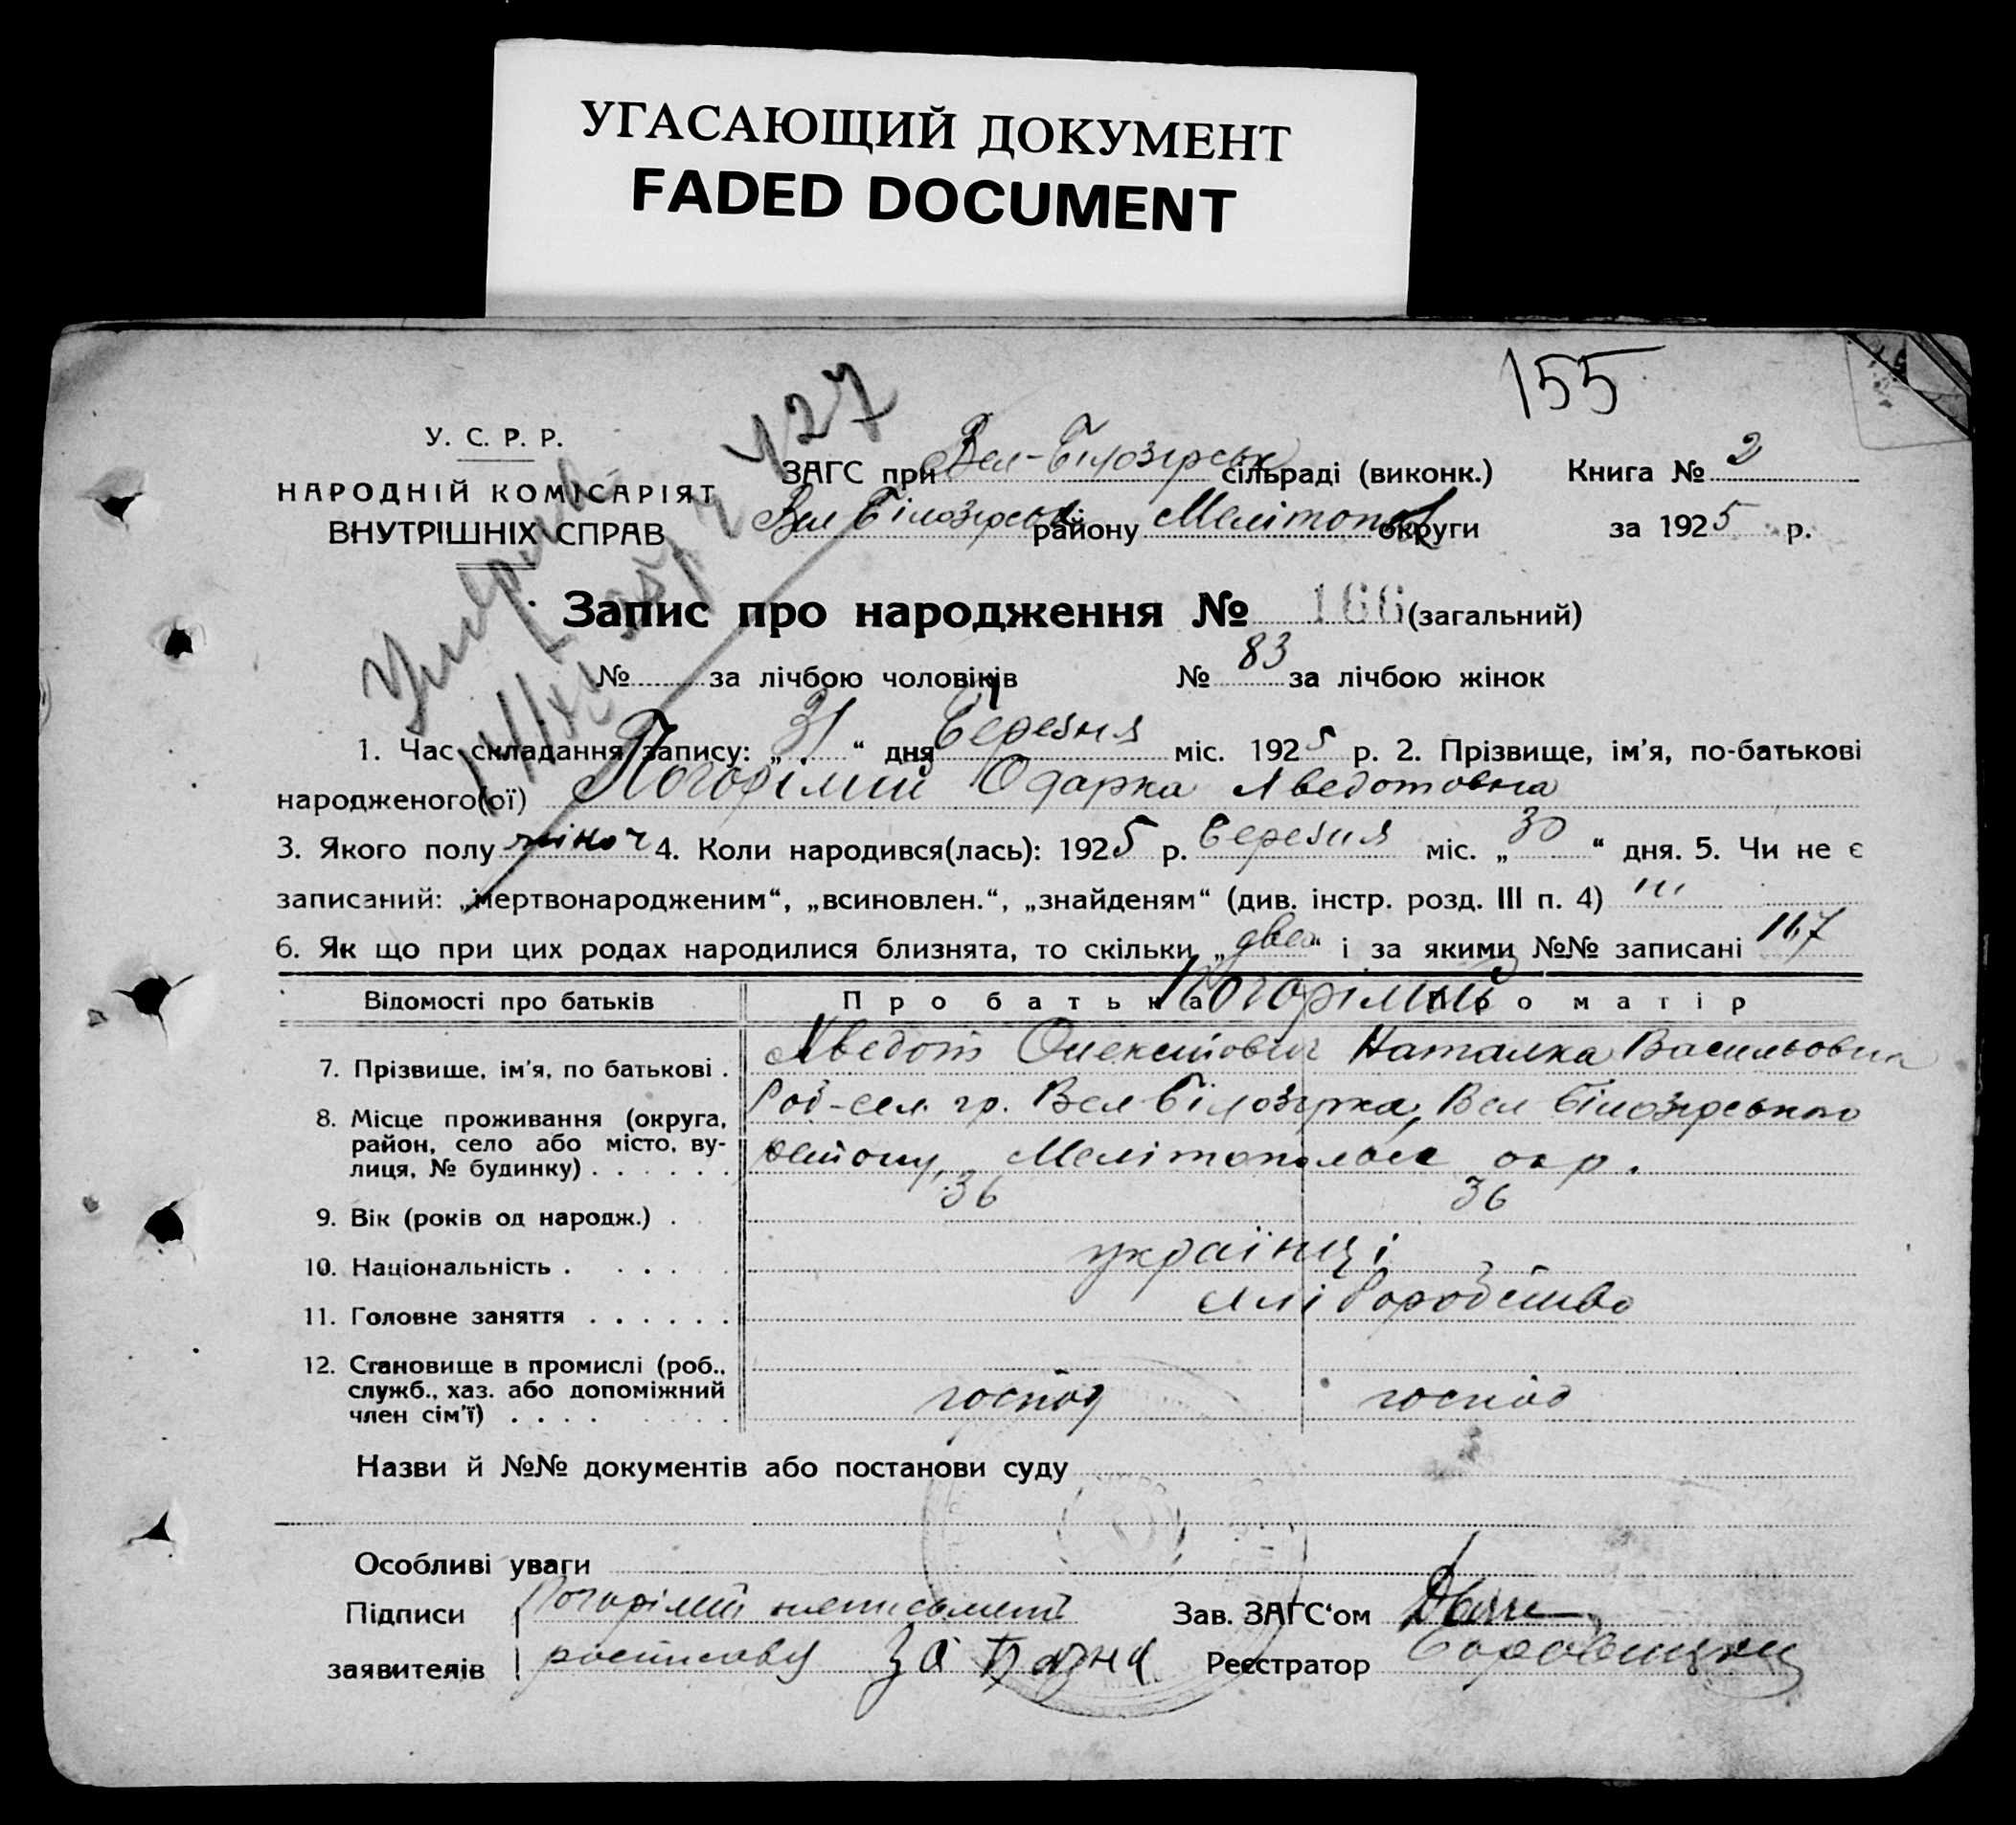 УГАСАЮЩИЙ ДОКУМЕНТ
FADED DOCUMENT
155
У. С. Р. Р.
НАРОДНІЙ КОМІСАРІЯТ
ВНУТРІШНІХ СПРАВ
427
ЗАГС при Вел-Білозірськ сільраді (виконк.) Книга № 2
Вел Білозірськ району Мелітоп округи за 1925 р.
Запис про народження № 166 (загальний)
№ за лічбою чоловіків № 83 за лічбою жінок
1. Час складання запису: „31“ дня березня міс. 1925 р. 2. Прізвище, ім’я, по-батькові
народженого(ої) Погорілий Одарка Яведотовна
3. Якого полу жіноч 4. Коли народився(лась): 1925 р. березня міс. „30“ дня. 5. Чи не є
записаний: „мертвонародженим“, „всиновлен.“, „знайденям“ (див. інстр. розд. III п. 4)
6. Як що при цих родах народилися близнята, то скільки „двоє“ і за якими №№ записані 167
Відомості про батьків Про батька Про матір
Погорілий
7. Прізвище, ім’я, по батькові . Яведот Олексійович Наталка Васильовна
8. Місце проживання (округа, район, село або місто, вулиця, № будинку) . . . . . . Вел Білозірка, Вел Білозірського
району, Мелітопольск окр.
9. Вік (років од народж.) . 36 36
10. Національність . . . . українці
11. Головне заняття . . . . . . хліборобство
12. Становище в промислі (роб., служб., хаз. або допоміжний член сім’ї) . . . . господ господ
Назви й №№ документів або постанови суду
Особливі уваги
Підписи Погорілий неписьмений Зав. ЗАГС‘ом
заявителів за Реєстратор